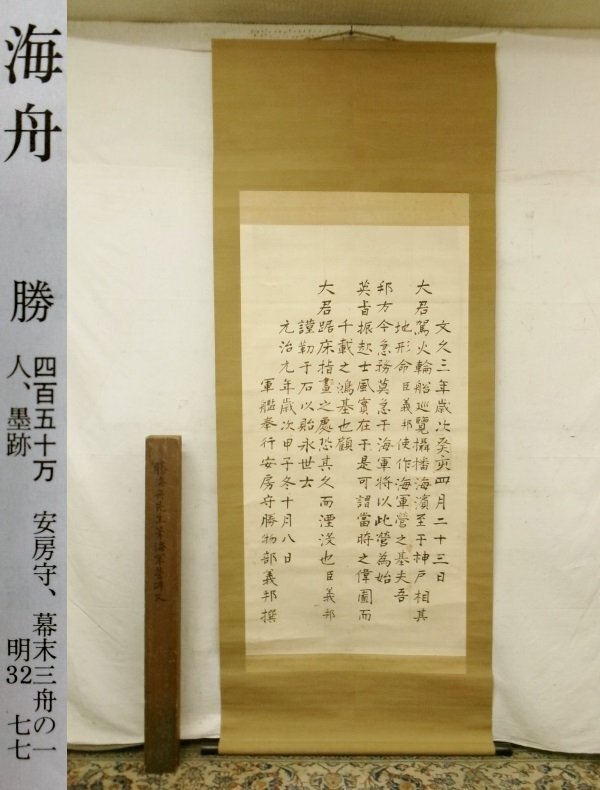 海舟 勝
四百五十万 安房守、幕末三舟の一
人、墨跡 明32 七七
文久三年歳次癸亥四月二十三日
大君駕火輪船巡覧攝播海濱至于神戸相其
地形命臣義邦使作海軍營之基夫吾
邦方今急務莫急于海軍將以此營為始
英旨振起士風實在于是可謂當時之偉圖而
千載之鴻基也顧
大君踞床指畫之處恐其久而湮没也臣義邦
謹勒于石以貽永世云
元治元年歳次甲子冬十月八日
軍艦奉行安房守勝物部義邦撰
勝海舟先生筆海軍營碑文